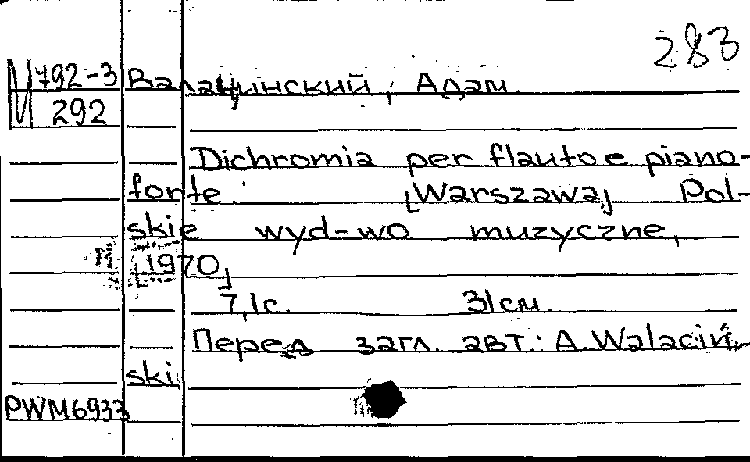 283
М792-3 Валацинский, Адам.
И 292
Dichromia per flauto e piano-
forte. [Warszawa] Pol-
skie wyd-wo muzyczne,
[1970]
7,1с. 31см.
Перед загл. авт.: A. Walaciń-
ski
PWM6933